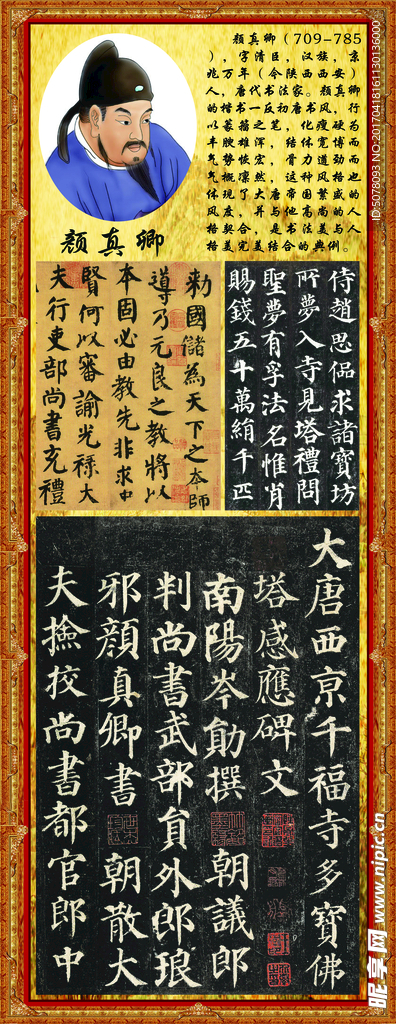 颜真卿（709-785
），字清臣，汉族，京
兆万年（今陕西西安）
人，唐代书法家。颜真卿
的楷书一反初唐书风，行
以篆籀之笔，化瘦硬为
丰腴雄浑，结体宽博而
气势恢宏，骨力遒劲而
气概凛然，这种风格也
体现了大唐帝国繁盛的
风度，并与他高尚的人
格契合，是书法美与人
格美完美结合的典例。
颜真卿
侍趙思偘求諸寶坊
所夢入寺見塔禮問
聖夢有孚法名惟肖
賜錢五十萬絹千匹
勅國儲為天下之本師
導乃元良之教將以
本固必由教先非求中
賢何以審諭光祿大
夫行吏部尚書充禮
大唐西京千福寺多寶佛
塔感應碑文
南陽岑勛撰 朝議郎
判尚書武部員外郎琅
邪顏真卿書 朝散大
夫撿挍尚書都官郎中
ID:5078093 NO:20170418161130136000
昵享网 www.nipic.cn